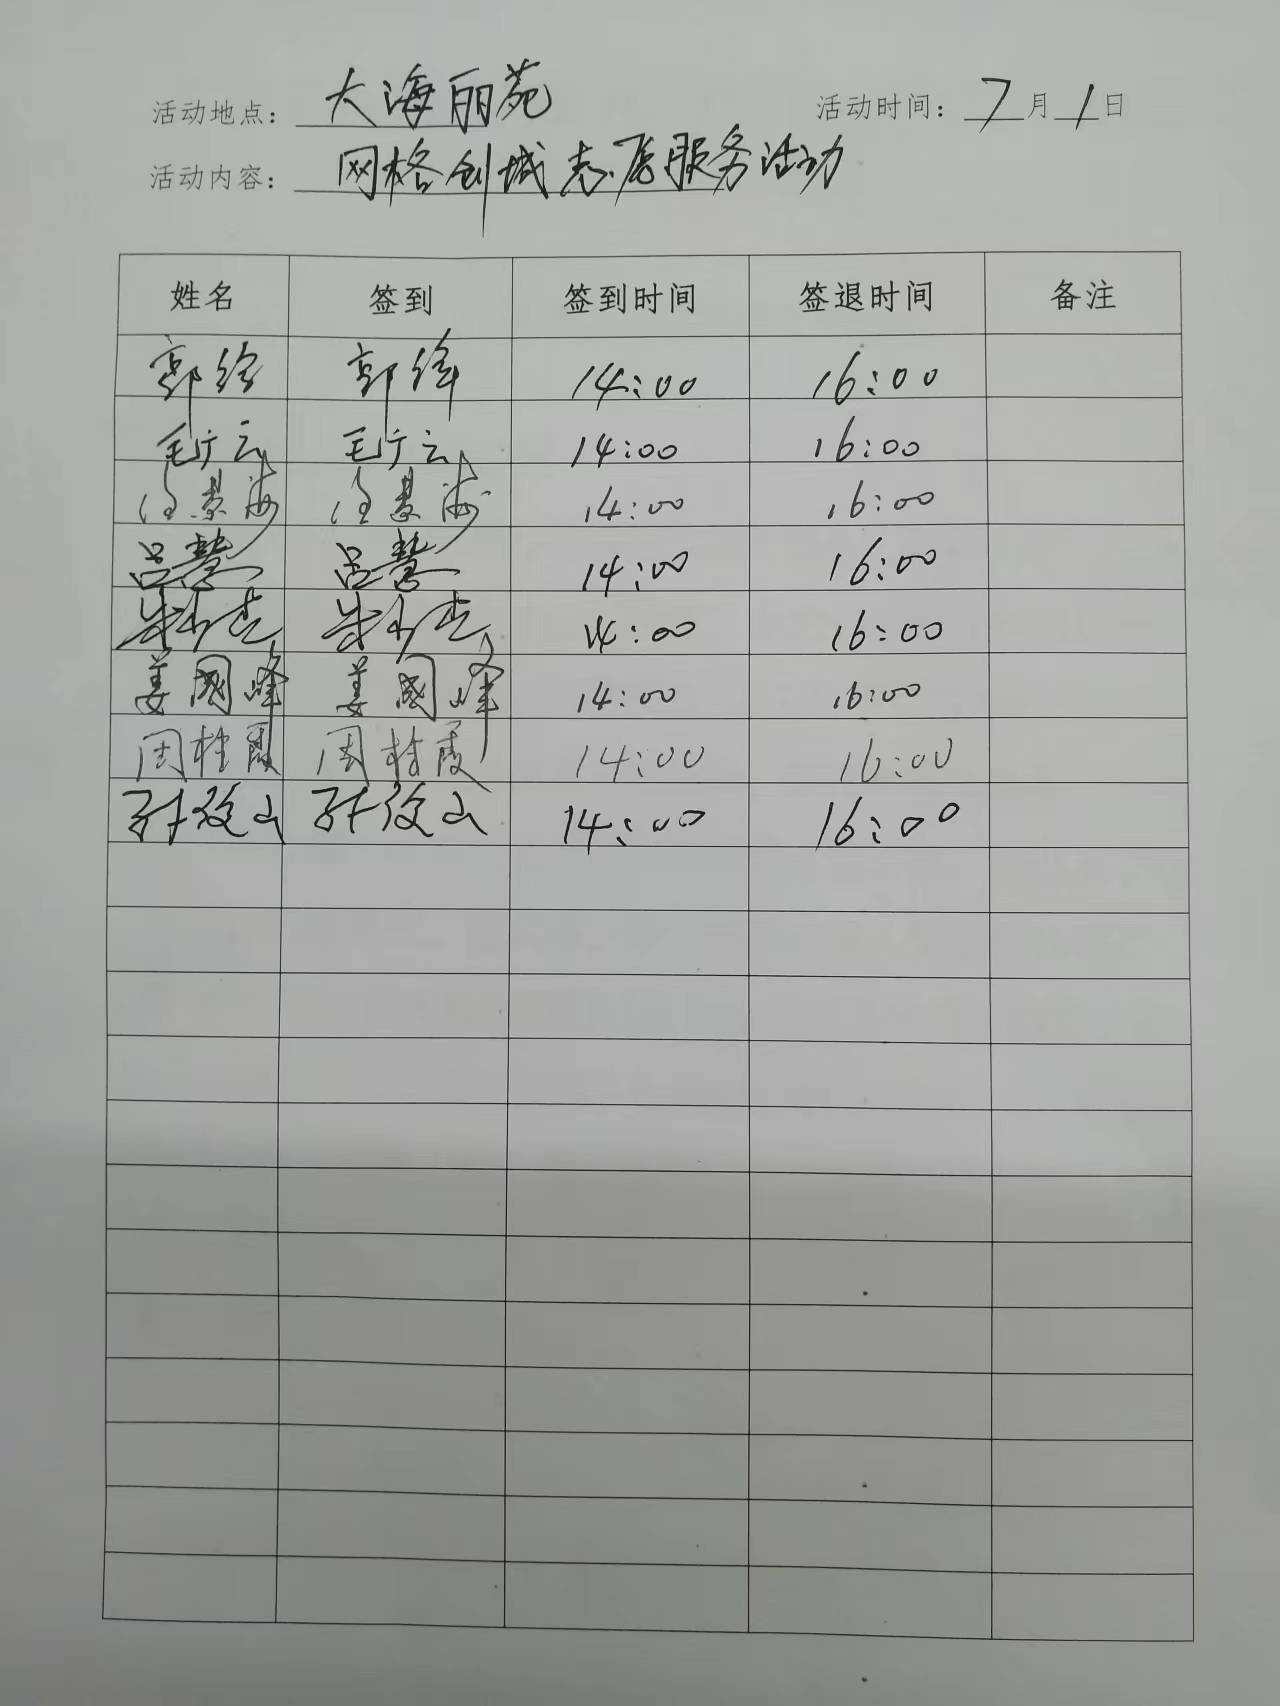 活动地点：大海丽苑 活动时间：7月1日
活动内容：网格创城志愿服务活动
姓名 签到 签到时间 签退时间 备注
郭 郭 14:00 16:00
毛广云 毛广云 14:00 16:00
海 海 14:00 16:00
吕慧 吕慧 14:00 16:00
朱杰 朱杰 14:00 16:00
姜國峰 姜國峰 14:00 16:00
周桂霞 周桂霞 14:00 16:00
山 山 14:00 16:00